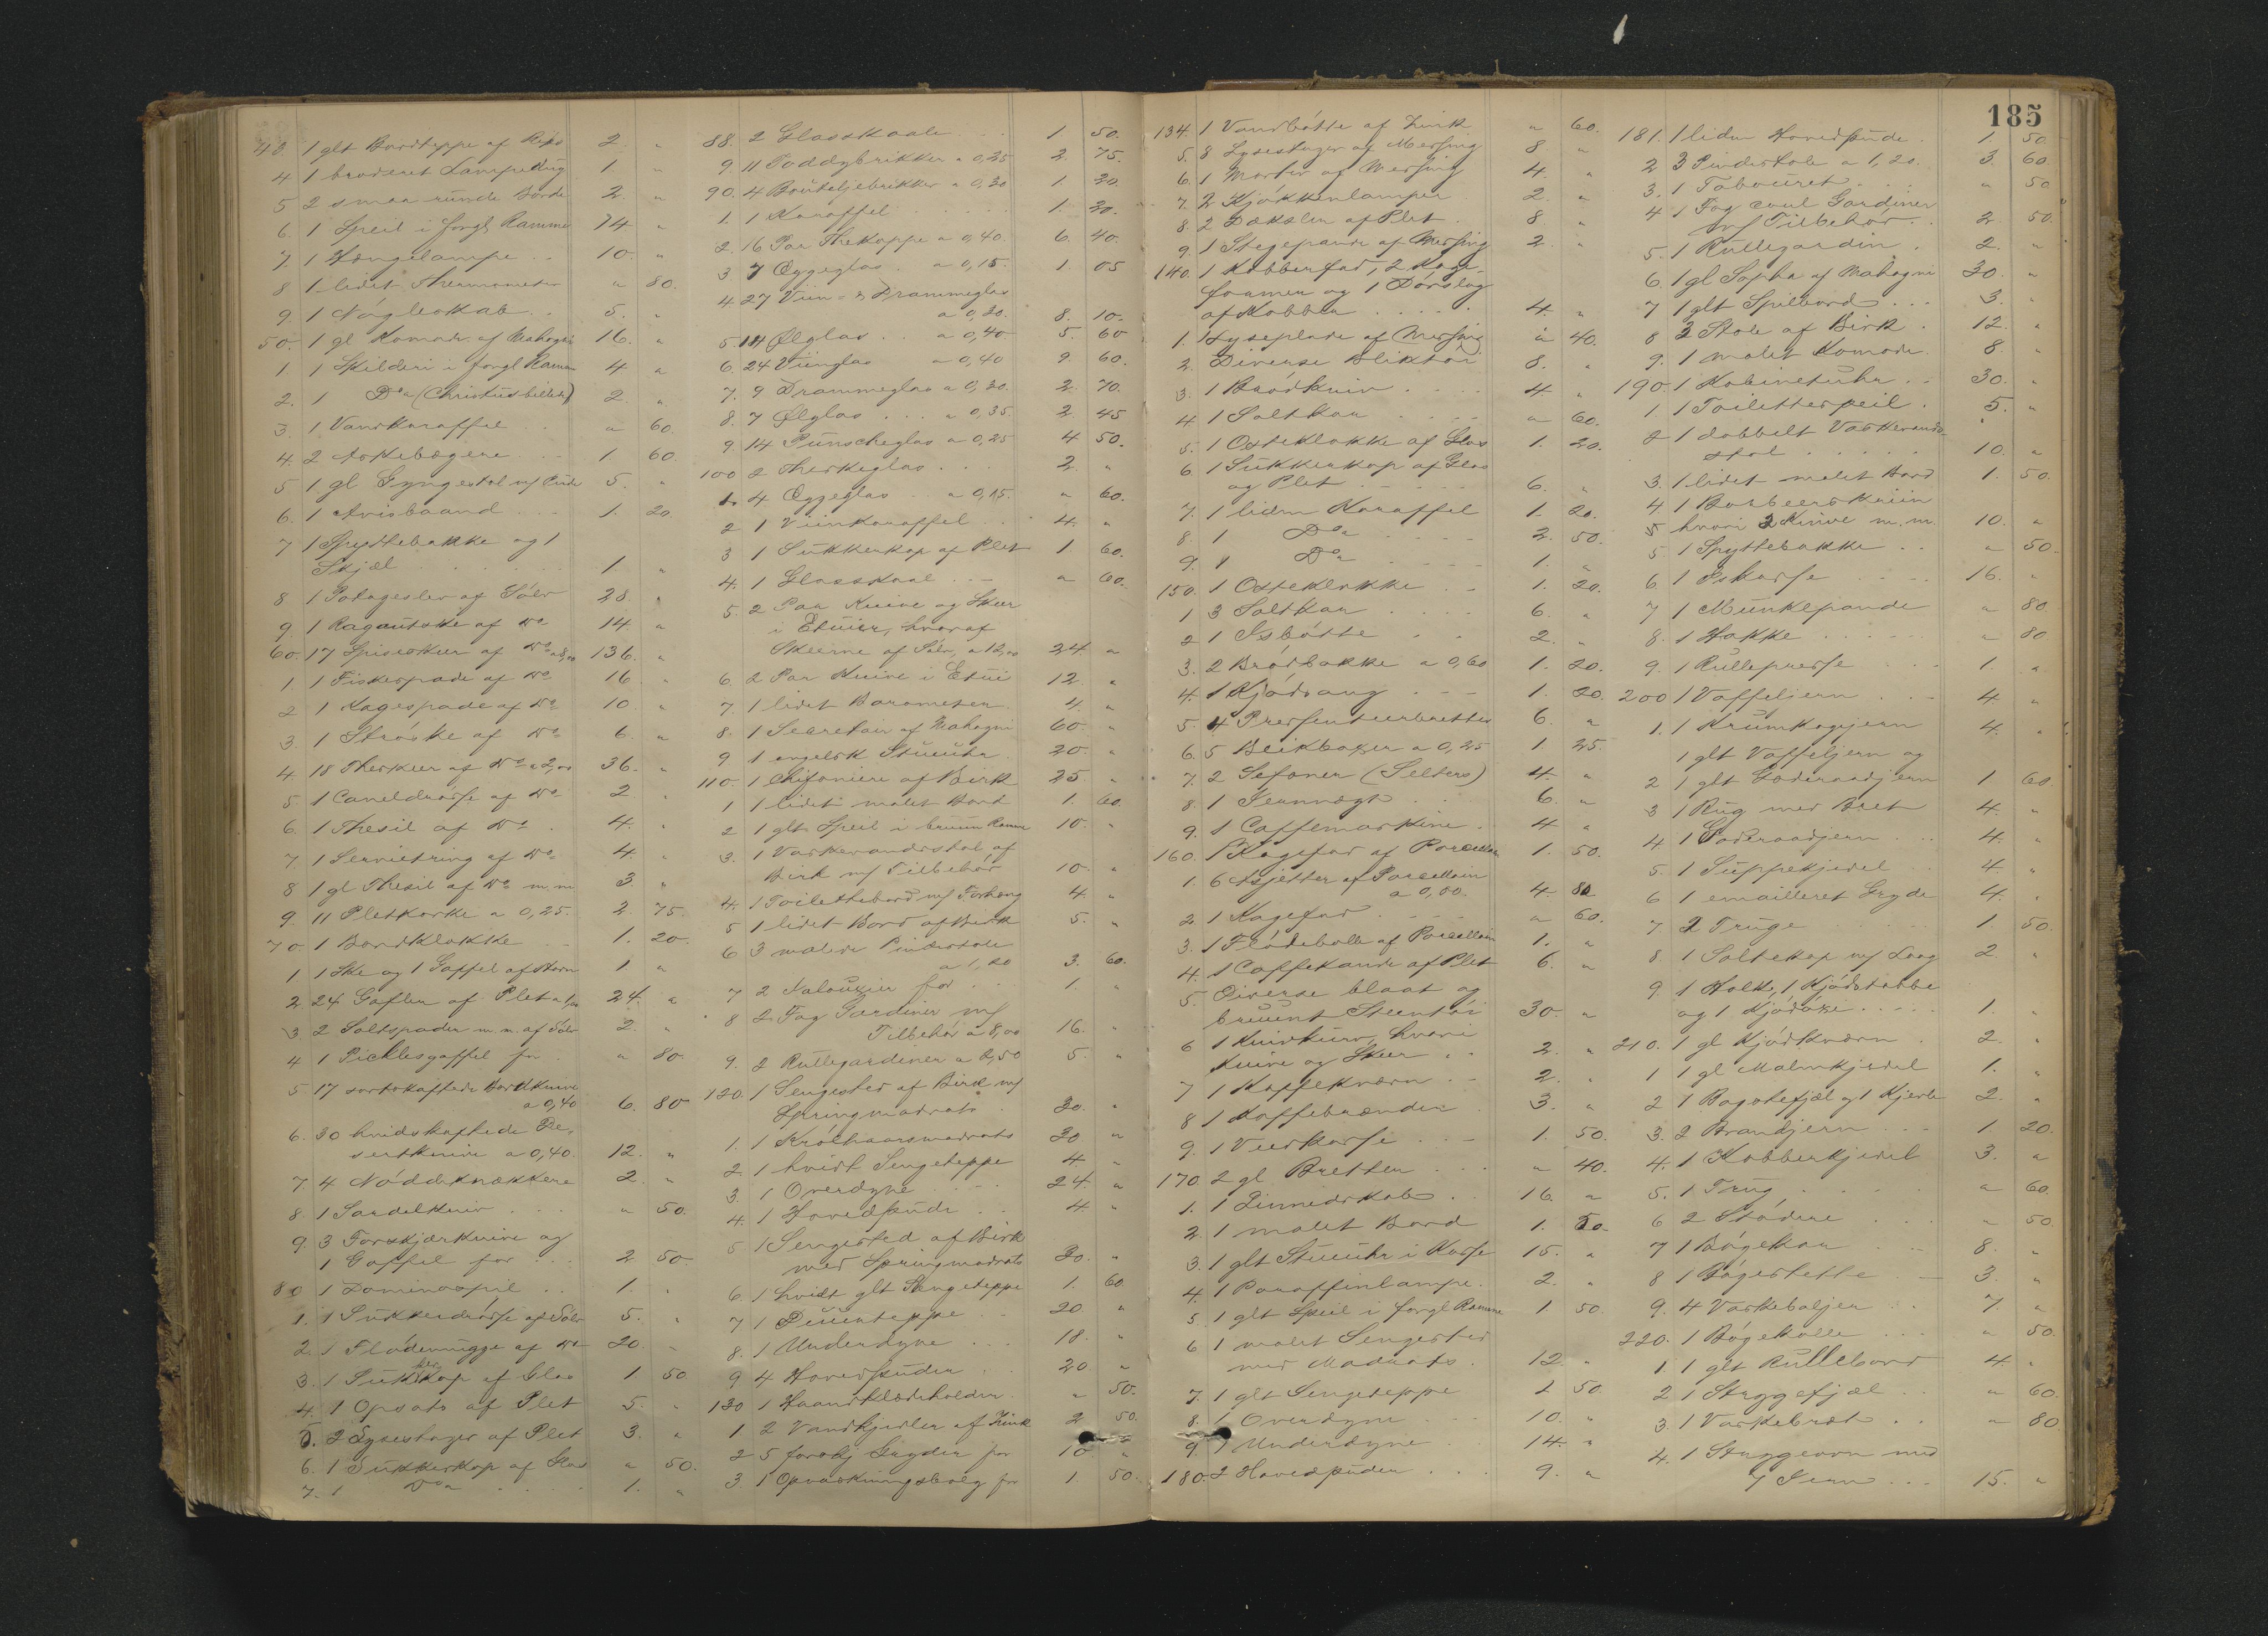 185
1 glt Bordteppe af Rips 2. "
4 1 broderet Lampedug 1. "
5 2 smaa runde Borde 2. "
6. 1 Speil i forgl Ramme 14 "
7. 1 Hængelampe . . 10. "
8 1 lidet Thermometer " 80.
9. 1 Nøgleskab . . 5. "
50. 1 gl Komode af Mahogni 16. "
1 1 Skilderi i forgl Ramme 4 "
2. 1 Do (Christusbillede) 2 "
3 1 Vandkaraffel . . " 60.
4. 2 Askebægere . . . 1. 60
5 1 gl Gyngestol m/ Pude 5. "
6. 1 Avisbaand . . . 1. 20
7 1 Spyttebakke og 1
Skjæl . . . . . . 1 "
8 1 Potageslev af Sølv 28. "
9. 1 Ragoutske af Do 14. "
60. 17 Spiseskeer af Do a 8,00 136. "
1. 1 Fiskespade af Do 16 "
2 1 Kagespade af Do 10. "
3. 1 Strøske af Do 6. "
4 18 Theskeer af Do a 2,00 36. "
5 1 Caneldaase af Do 2 "
6. 1 Thesil af Do . 4. "
7. 1 Servietring af Do 4. "
8 1 gl Thesil af Do m. m 3. "
9. 11 Pletkorke a 0,25. 2. 75.
70. 1 Bordklokke 1. 20.
1 1 Ske og 1 Gaffel af Horn 1 "
2. 24 Gafler af Plet a 1,00 24. "
3 2 Saltspader m. m. af Sølv 2. "
4 1 Picklesgaffel for . " 80.
5 17 sortskaftede Bordknive
a 0,40 6. 80
6. 30 hvidskaftede De-
sertknive a 0,40. 12. "
7. 4 Nøddeknækkere 2. "
8. 1 Sardelkniv . . . " 50.
9. 3 Forskjærknive og
1 Gaffel for . . . 2 50.
80 1 Dominospil . . 1. "
1. 1 Sukkerdaase af Sølv 5. "
2. 1 Flødemugge af Do 20. "
3. 1 Sukkerkop af Glas 1 50
4. 1 Opsats af Plet 5. "
5. 2 Lysestager af Plet 3. "
6. 1 Sukkerkop af Glas " 50.
7. 1 Do . . . . 1. "
88. 2 Glasskaale . . . 1. 50.
9 11 Toddybrikker a 0,25 2. 75.
90. 4 Bouteljebrikker a 0,30 1. 20.
1. 1 Karaffel . . . . . 1. 20.
2. 16 Par Thekoppe a 0,40. 6. 40.
3 7 Æggeglas . a 0,15. 1. 05
4. 27 Viin- & Drammeglas
a 0,30. 8. 10.
5 14 Ølglas . . a 0,40 5. 60
6. 24 Viinglas a 0,40 9. 60.
7. 9 Drammeglas a 0,30. 2. 70.
8. 7 Ølglas . . . a 0,35. 2 45
9 14 Punscheglas a 0,25 4 50.
100 2 Theskeglas . . . 2. "
1. 4 Æggeglas . a 0,15. " 60.
2 1 Viinkaraffel . . . 4. "
3 1 Sukkerkop af Plet 1. 60.
4. 1 Glasskaal . . . " 60.
5. 2 Par Knive og Skeer
i Etuier, hvoraf
Skeerne af Sølv, a 12,00 24. "
6. 2 Par Knive i Etui 12. "
7. 1 lidet Barometer 4. "
8. 1 Secretair af Mahogni 60. "
9 1 engelsk Stueuhr 20. "
110. 1 Chifoniere af Birk 25. "
1 1 lidet malet Bord 1. 60.
2 1 glt Speil i bruun Ramme 10. "
3. 1 Vaskevandsstol af
Birk m/ Tilbehør 10. "
4. 1 Toilettebord m/ Forhæng 4. "
5 1 lidet Bord af Birk 5. "
6 3 malede Pindestole
a 1,20 3. 60.
7 2 Jalousier for . . . 1. "
8 2 Fag Gardiner m/
Tilbehør a 8,00 16. "
9. 2 Rullegardiner a 2,50 5. "
120. 1 Sengested af Birk m/
Springmadrats 30. "
1. 1 Krølhaarsmadrats 30 "
2. 1 hvidt Sengeteppe 4 "
3. 1 Overdyne . . . . 24. "
4. 1 Hovedpude . . . 4 "
5 1 Sengested af Birk
med Springmadrats 30. "
6. 1 hvidt glt Sengeteppe 1. 60
7 1 Duunteppe . . 20. "
8. 1 Underdyne . . . 18. "
9 4 Hovedpuder . . . 20 "
130 1 Haandklædeholder " 50.
1 2 Vandkjedler af Zink 2 50.
2 5 forskj Gryder for 10 "
3. 1 Opvaskningsbalg for 1 50.
134. 1 Vandbøtte af Zink " 60.
5. 8 Lysestager af Messing 8. "
6. 1 Morter af Messing 4. "
7. 2 Kjøkkenlamper 2. "
8. 2 Dæksler af Plet . 8 "
9. 1 Stegepande af Messing 2. "
140. 1 Kobberfad, 2 Kage-
former og 1 Dørslag
af Kobber . . . . . 4. "
1. 1 Lyseplade af Messing " 40.
2. Diverse Bliktøi 8. "
3. 1 Brødkniv . . . . 4 "
4 1 Saltkar . . . . " 60.
5. 1 Osteklokke af Glas 1. 20.
6 1 Sukkerkop af Glas
og Plet . . . . . 6. "
7. 1 liden Karaffel 1. 20.
8. 1 Do . . . . 2. 50.
9. 1 Do . . . . 1. "
150. 1 Osteklokke . . 1. 20.
1 3 Saltkar . . . . 6. "
2 1 Isbøtte . . 2. "
3. 2 Brødbakke a 0,60 1. 20.
4. 1 Kjødsaug . . . 1. 20.
5. 4 Presenteerbretter 6. "
6. 5 Blikbaxer a 0,25 1 25.
7. 2 Sefoner (Selters) 4. "
8. 1 Jernvægt . . . 6. "
9. 1 Caffemaskine . 4 "
160. 1 Kagefad af Porcellain 1. 50.
1. 6 Asjetter af Porcellain
4. 80
2. 1 Kagefad . . . . " 60.
3. 1 Flødebolle af Porcellain 1. "
4. 1 Caffekande af Plet 6. "
5. Diverse blaat og
bruunt Steentøi 30. "
6 1 Knivkurv, hvori
Knive og Skeer . . 2. "
7 1 Kaffekværn . . 2. "
8 1 Kaffebrænder . 3. "
9. 1 Veiskaase . . . 1. 50.
170 2 gl Bretter . . . " 40.
1. 1 Linnedskab . . 16. "
2. 1 malet Bord 1. 50.
3. 1 glt Stueuhr i Kasse 15. "
4. 1 Paraffinlampe . 2. "
5. 1 glt Speil i forgl Ramme 1. 50.
6 1 malet Sengested
med Madrats . 12. "
7. 1 glt Sengeteppe 1 50.
8. 1 Overdyne . . . 10. "
9. 1 Underdyne . . . 14. "
180. 2 Hovedpuder . . . 9. "
181. 1 liden Hovedpude . 1. 50.
2 3 Pindestole a 1,20. 3. 60
3. 1 Tabouret . . . . " 50
4 1 Fag coul Gardiner
m/ Tilbehør . . 2. 50.
5. 1 Rullegardin . 2. "
6. 1 gl Sopha af Mahogni 30. "
7 1 glt Spilbord . . . 3. "
8 3 Stole af Birk . 12. "
9. 1 malet Komode 8. "
190. 1 Kabinetuhr . . 30. "
1 1 Toiletspeil . 5. "
2 1 dobbelt Vaskevands-
stol . . . . . . 10. "
3. 1 lidet malet Bord 1. 50.
4 1 Barbeerskriin
hvori 2 Knive m. m. 10. "
5 1 Spyttebakke . . " 50.
6. 1 Iskasse . . . 16. "
7 1 Munkepande " 80
8. 1 Hakke . . . . . " 80
9. 1 Rullepresse . . 1. "
200 1 Vaffeljern . . . 4 "
1. 1 Krumkagejern 4. "
1 glt Vaffeljern og
2 1 glt Goderaadjern 1 60
3 1 Rug med Bret 4. "
4 1 Goderaadjern . . . 4. "
5. 1 Suppekjedel 4. "
6 1 emailleret Gryde 4. "
7 2 Truge 1. 50.
8 1 Saltekop m/ Laag 2. "
9. 1 Holk, 1 Kjødstabbe
og 1 Kjødøxe . . . . 1. "
210. 1 gl Kjødkværn . 2. "
1 1 gl Malmkjedel 1. "
2 1 Bagstefjæl og 1 Kjevle 2. "
3. 2 Brandjern . . . 1. 20.
4. 1 Kobberkjedel 3. "
5. 1 Trug . . . . " 60.
6 2 Stødere . . . " 50.
7 1 Bøgekar . . 8. "
8 1 Bøgestette 3. "
9. 4 Vaskebaljer . . 7. "
220. 1 Bøgekolle . . . " 50.
1 1 glt Rullebord 4. "
2 1 Strygefjæl . . " 60.
3. 1 Vaskebræt . . " 80
4. 1 Strygeovn med
7 Jern . . . 15. "